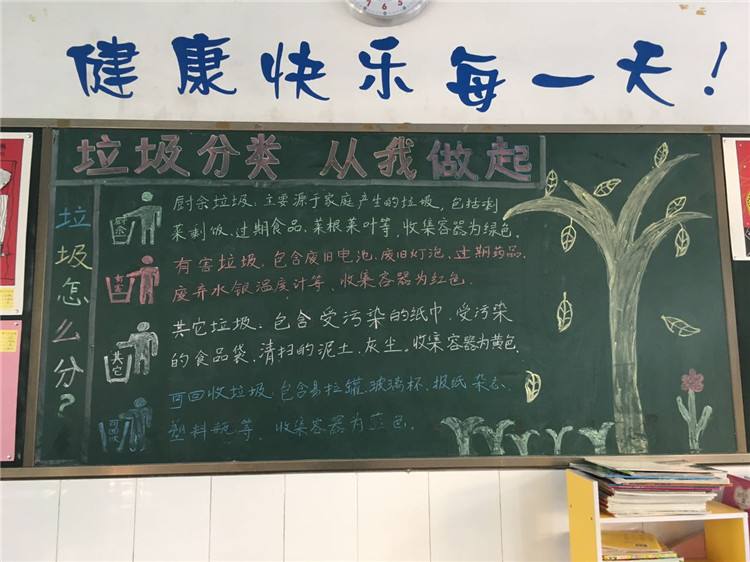 健康快乐每一天！
垃圾分类 从我做起
垃圾怎么分？
厨余垃圾：主要源于家庭产生的垃圾，包括剩
菜剩饭、过期食品、菜根菜叶等，收集容器为绿色。
有害
有害垃圾、包含废旧电池、废旧灯泡、过期药品、
废弃水银温度计等、收集容器为红色。
其它
其它垃圾、包含受污染的纸巾、受污染
的食品袋、清扫的泥土、灰尘。收集容器为黄色。
可回收垃圾、包含易拉罐、玻璃杯、报纸杂志、
塑料瓶等、收集容器为蓝色。